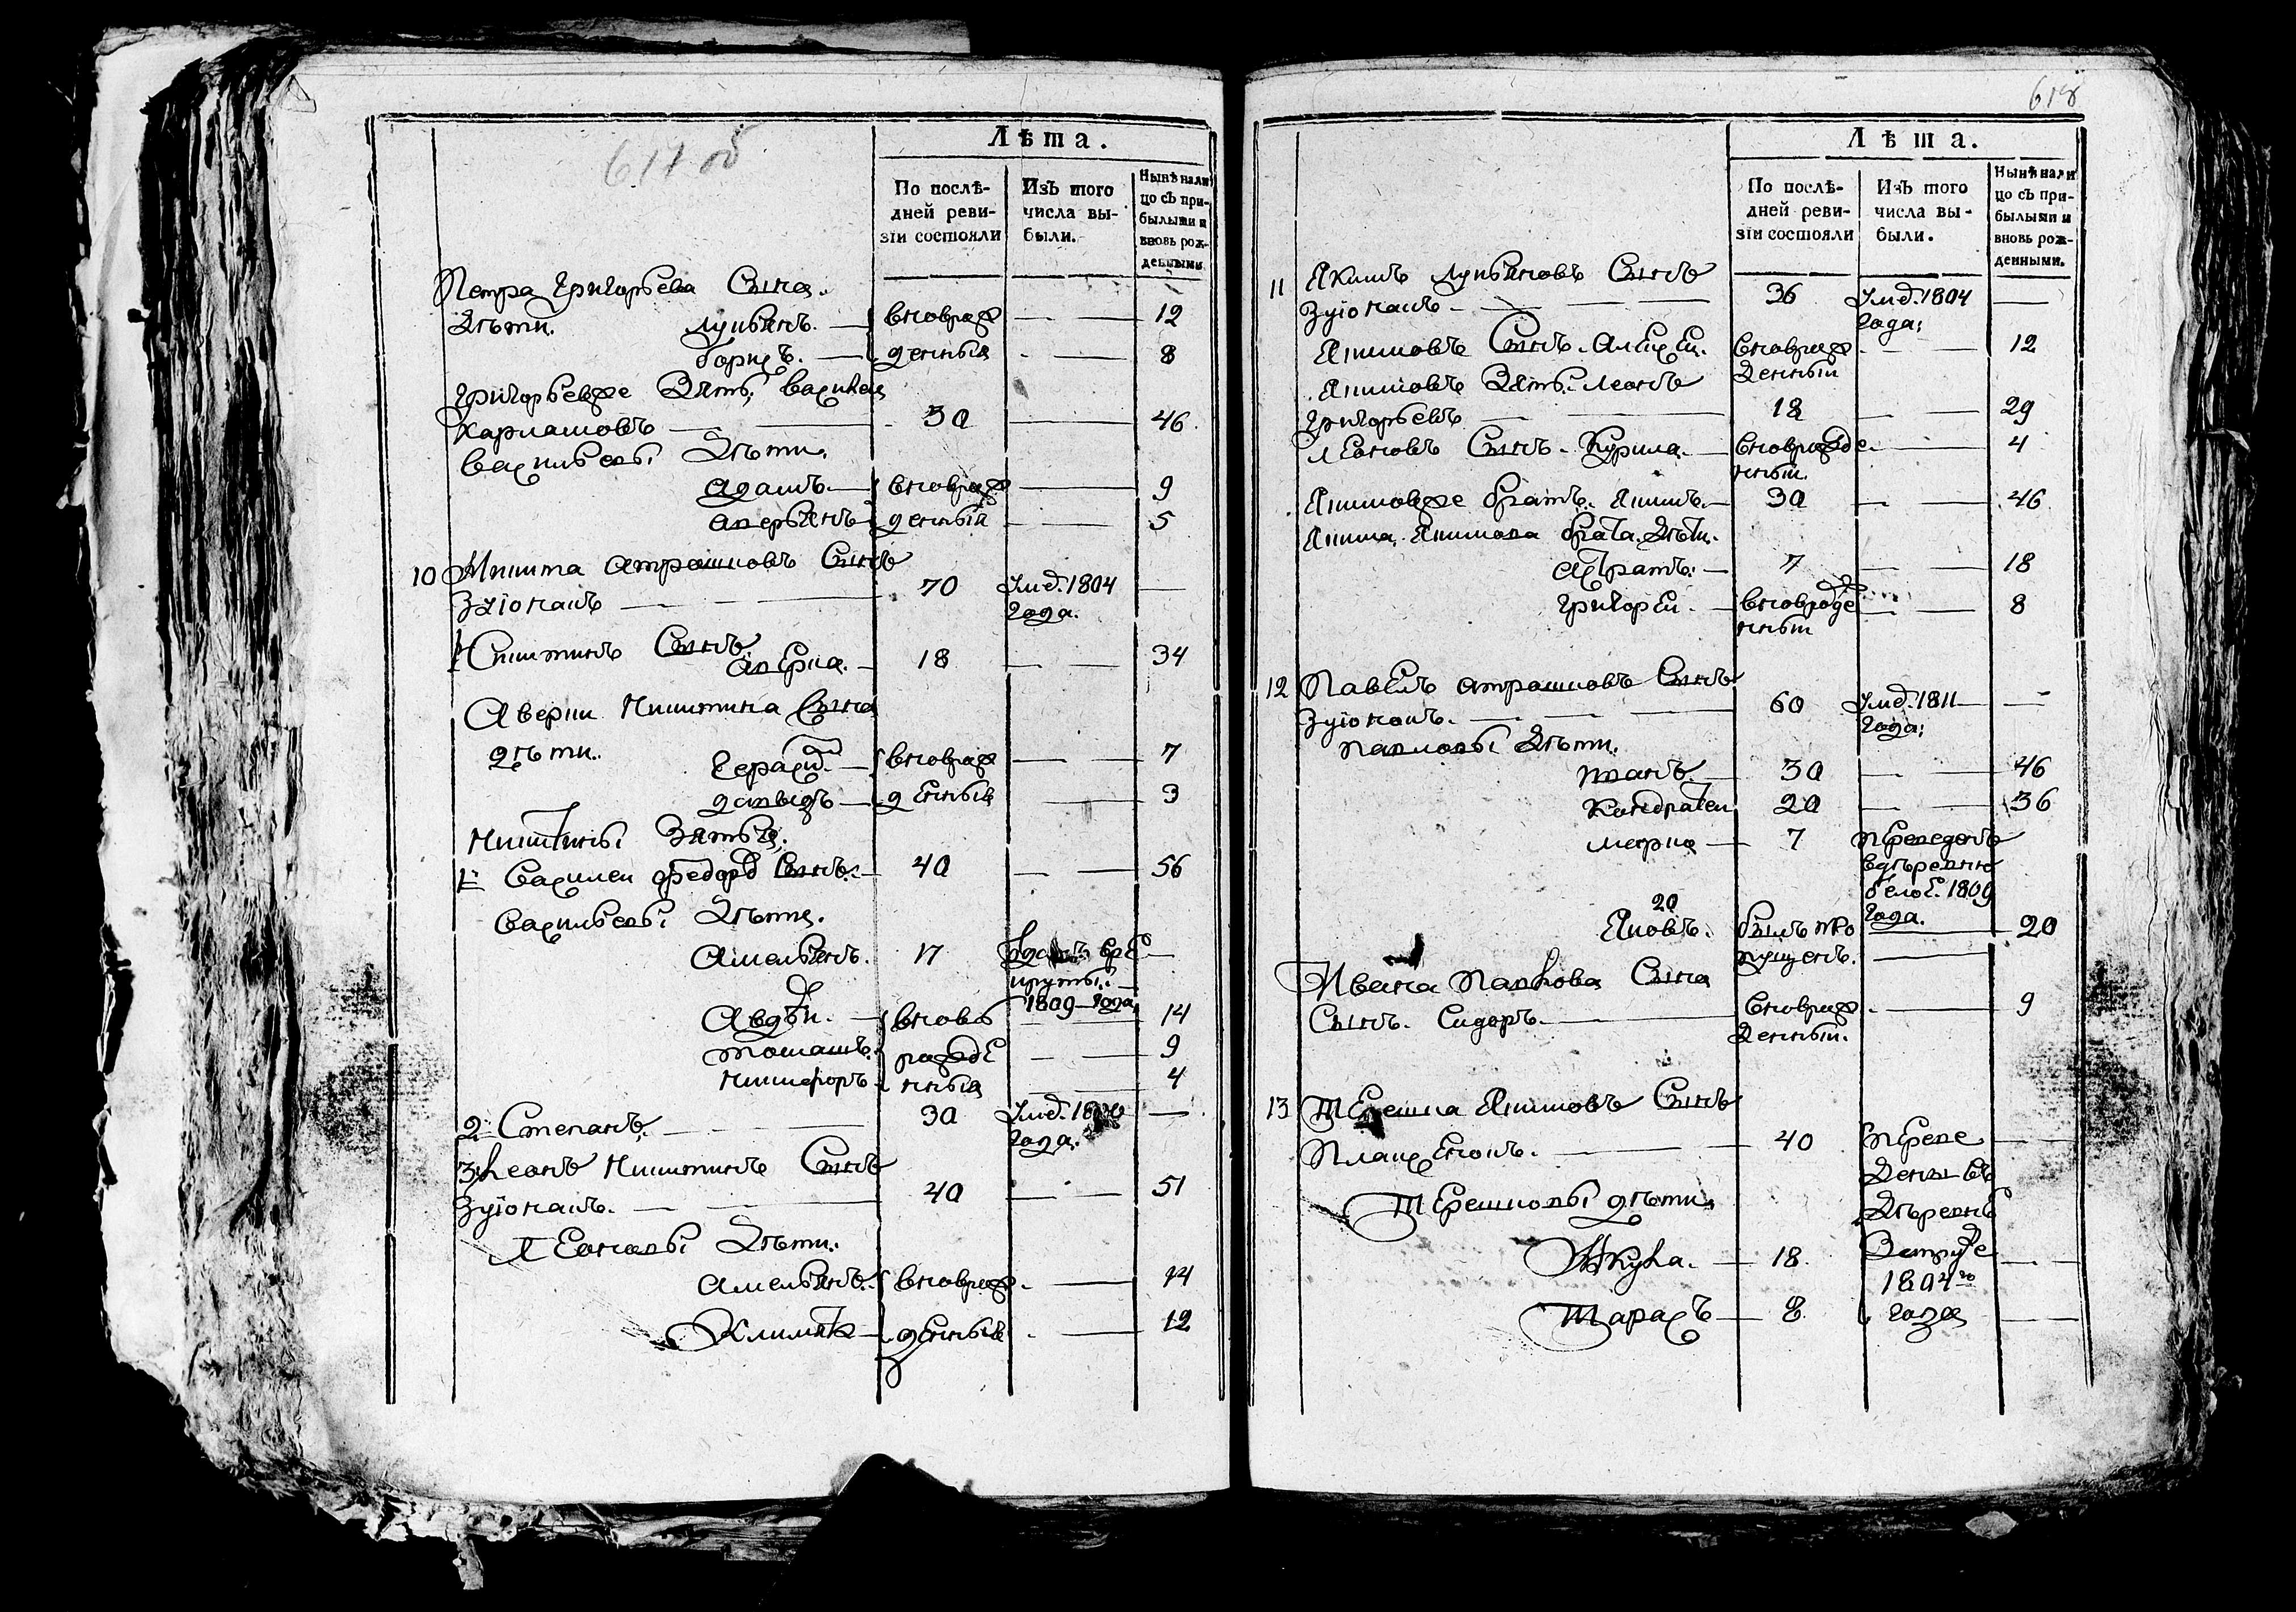 617 об
Лѣта.
По послѣ-
дней реви-
зіи состояли
Изъ того
числа вы-
были.
Нынѣ нали
цо съ при-
былыми и
вновь рож-
денными
Петра Григорьева Сына
Дѣти. Лукьянъ. вновраж 12
Борисъ. денныя 8
Григорьевже Зять, Василей
Карпашовъ 30 46
Васильевы Дѣти.
Адамъ. вновраж 9
Аверьянъ денныи 5
10 Микита Атрашковъ Сынъ
Зуіонакъ 70 Умд. 1804
года.
Никитинъ Сынъ
Аверка. 18 34
Аверки Никитина Сына
дѣти.
Герасим. вновраж 7
давыдъ денныя 3
Никитины Зятья,
1 Василеи Федоров Сынъ. 40 56
Васильевы Дѣти.
Амельянъ. 17 Вданъ врЕ
круты.
1809 года
Авдѣи. вновь 14
Томашъ. ражде 9
Никифоръ нныя 4
2 Степанъ. 30 Умд.
года.
3 Леонъ Никитинъ Сынъ
Зуіонакъ. 40 51
ЛЕоновы Дѣти.
Амельянъ. вновраж 14
Климъ денныя 12
618
Лѣта.
По послѣ-
дней реви-
зіи состояли
Изъ того
числа вы-
были.
Нынѣ нали
цо съ при-
былыми и
вновь рож-
денными.
11 Якимъ Лукьяновъ Сынъ
Зуіонакъ 36 Умд. 1804
года;
Якимовъ Сынъ Алексеи. вновраж 12
денныи
Якимовъ Зять. Леонъ
Григорьевъ 18 29
ЛЕоновъ Сынъ Курила. вновражде 4
нныи
Якимовже братъ. Якимъ. 30 46
Якима Якимова брата Дѣти.
Астратъ. 7 18
Григореи. вновражде 8
нныи
12 Павелъ Атрашковъ Сынъ
Зуіонакъ. 60 Умд. 1811
года;
Павловы Дѣти.
Иванъ. 30 46
Кондратеи 20 36
Марка 7 пЕреведенъ
вдѣревню
белоЕ. 1809
года.
20
Яковъ. былъ про 20
пущенъ.
Ивана Павлова Сына
Сынъ. Сидоръ. вновраж 9
Денныи.
13 ТЕрешка Якимовъ Сынъ
Плащенокъ. 40 пЕреве
Дены въ
Дѣревню
ТЕрешковы дѣти
18 Затруде
1804 го
Тарасъ 8 года